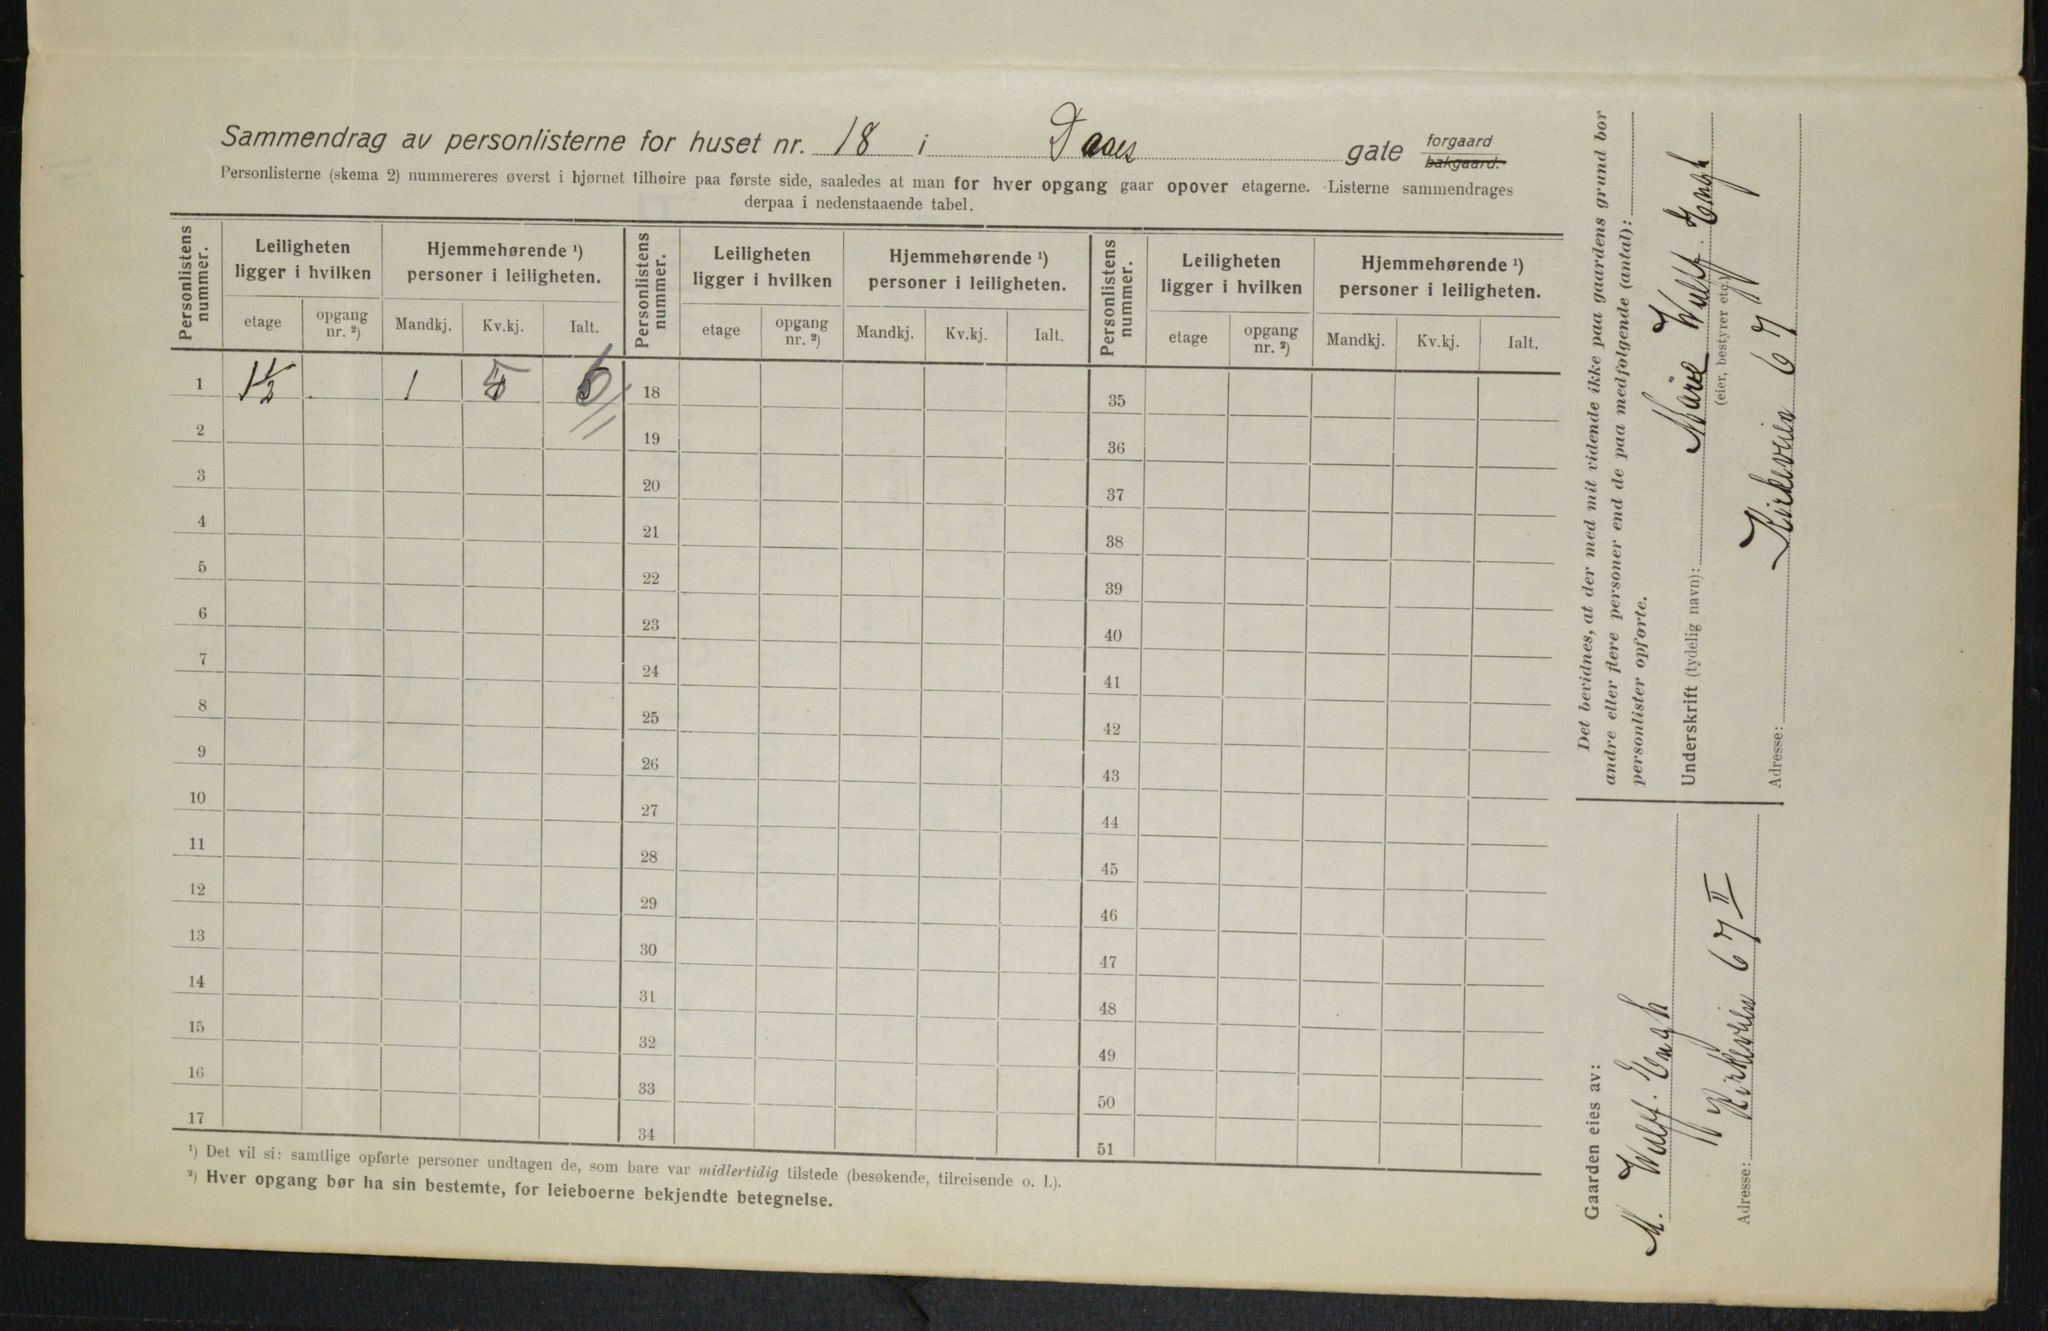 Sammendrag av personlisterne for huset nr. 18 i Daaes gate forgaard bakgaard.
Personlisterne (skema 2) nummereres øverst i hjørnet tilhøire paa første side, saaledes at man for hver opgang gaar opover etagerne. Listerne sammendrages
derpaa i nedenstaaende tabel.
Personlistens nummer. Leiligheten ligger i hvilken Hjemmehørende ¹) personer i leiligheten. Personlistens nummer. Leiligheten ligger i hvilken Hjemmehørende ¹) personer i leiligheten. Personlistens nummer. Leiligheten ligger i hvilken Hjemmehørende ¹) personer i leiligheten.
etage opgang nr. ²) Mandkj. Kv.kj. Ialt. etage opgang nr. ²) Mandkj. Kv.kj. Ialt. etage opgang nr. ²) Mandkj. Kv.kj. Ialt.
1 1½ 1 5 6 18 35
2 19 36
3 20 37
4 21 38
5 22 39
6 23 40
7 24 41
8 25 42
9 26 43
10 27 44
11 28 45
12 29 46
13 30 47
14 31 48
15 32 49
16 33 50
17 34 51
¹) Det vil si: samtlige opførte personer undtagen de, som bare var midlertidig tilstede (besøkende, tilreisende o. l.).
²) Hver opgang bør ha sin bestemte, for leieboerne bekjendte betegnelse.
Det bevidnes, at der med mit vidende ikke paa gaardens grund bor
andre eller flere personer end de paa medfølgende (antal):
personlister opførte.
Underskrift (tydelig navn): Marie Wulff. Engh
(eier, bestyrer etc.)
Adresse: Kirkeveien 67 IV
Gaarden eies av:
M. Wulff. Engh
Adresse: Kirkeveien 67 II